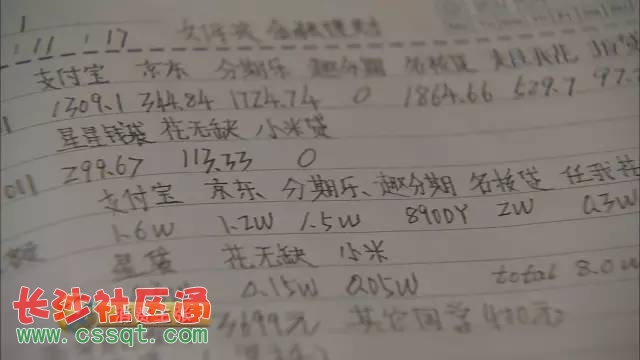 支付宝 京东 分期乐 趣分期 名校贷
1309.1 344.84 1724.74 0 1864.66 529.7 97.
星星钱袋 花无缺 小米贷
299.67 113.33 0
支付宝 京东、分期乐、趣分期 名校贷 任我花
1.6W 1.2W 1.5W 8900DY 2W 0.3W
星袋 花无缺 小米
0.15W 0.05W total 8.0W
3699元 其它同学 400元
长沙社区通
www.cssqt.com